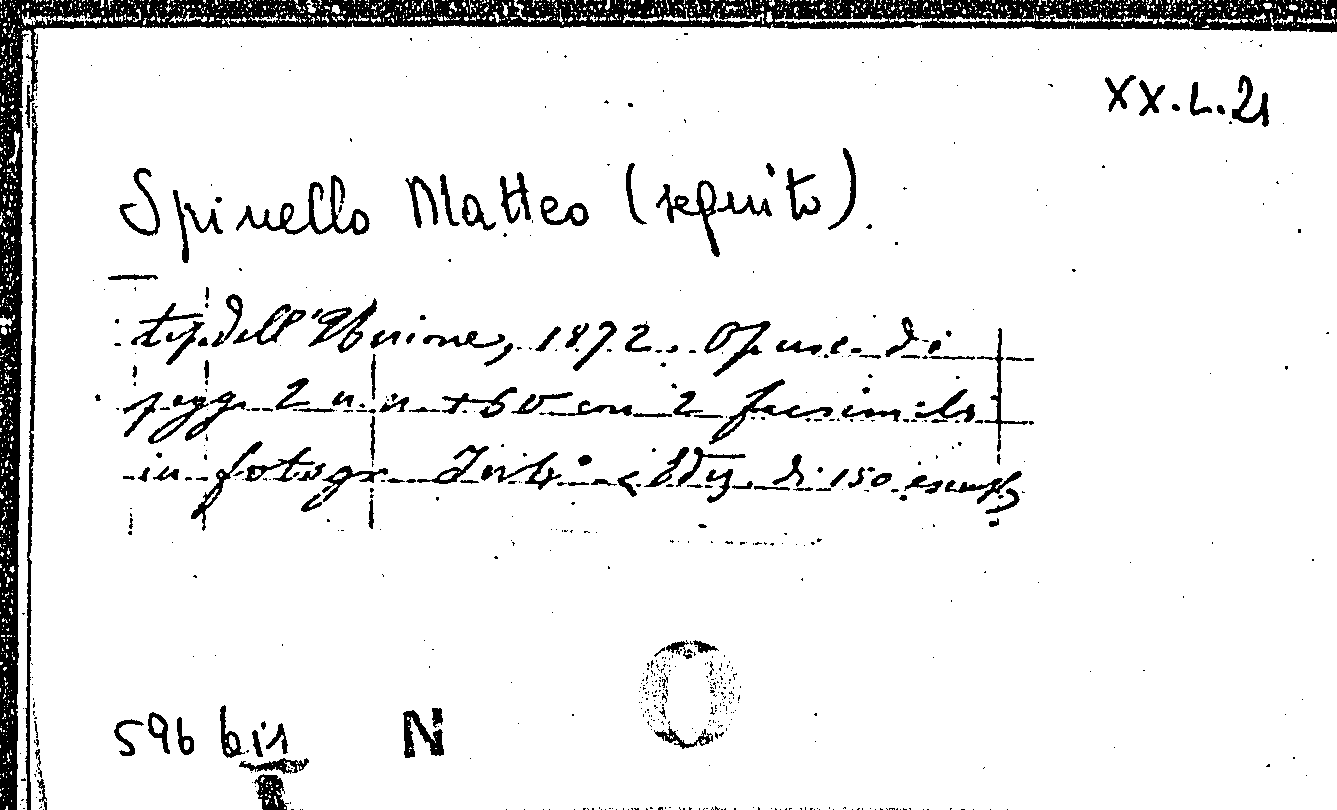 XX.L.21
Spinello Matteo (seguito).
tip. dell'Unione, 1872. Opusc. di
pagg. 2 n. n. + 60 con 2 facsimili
in fotogr. Ediz. di 150 esempl.
596 bis N